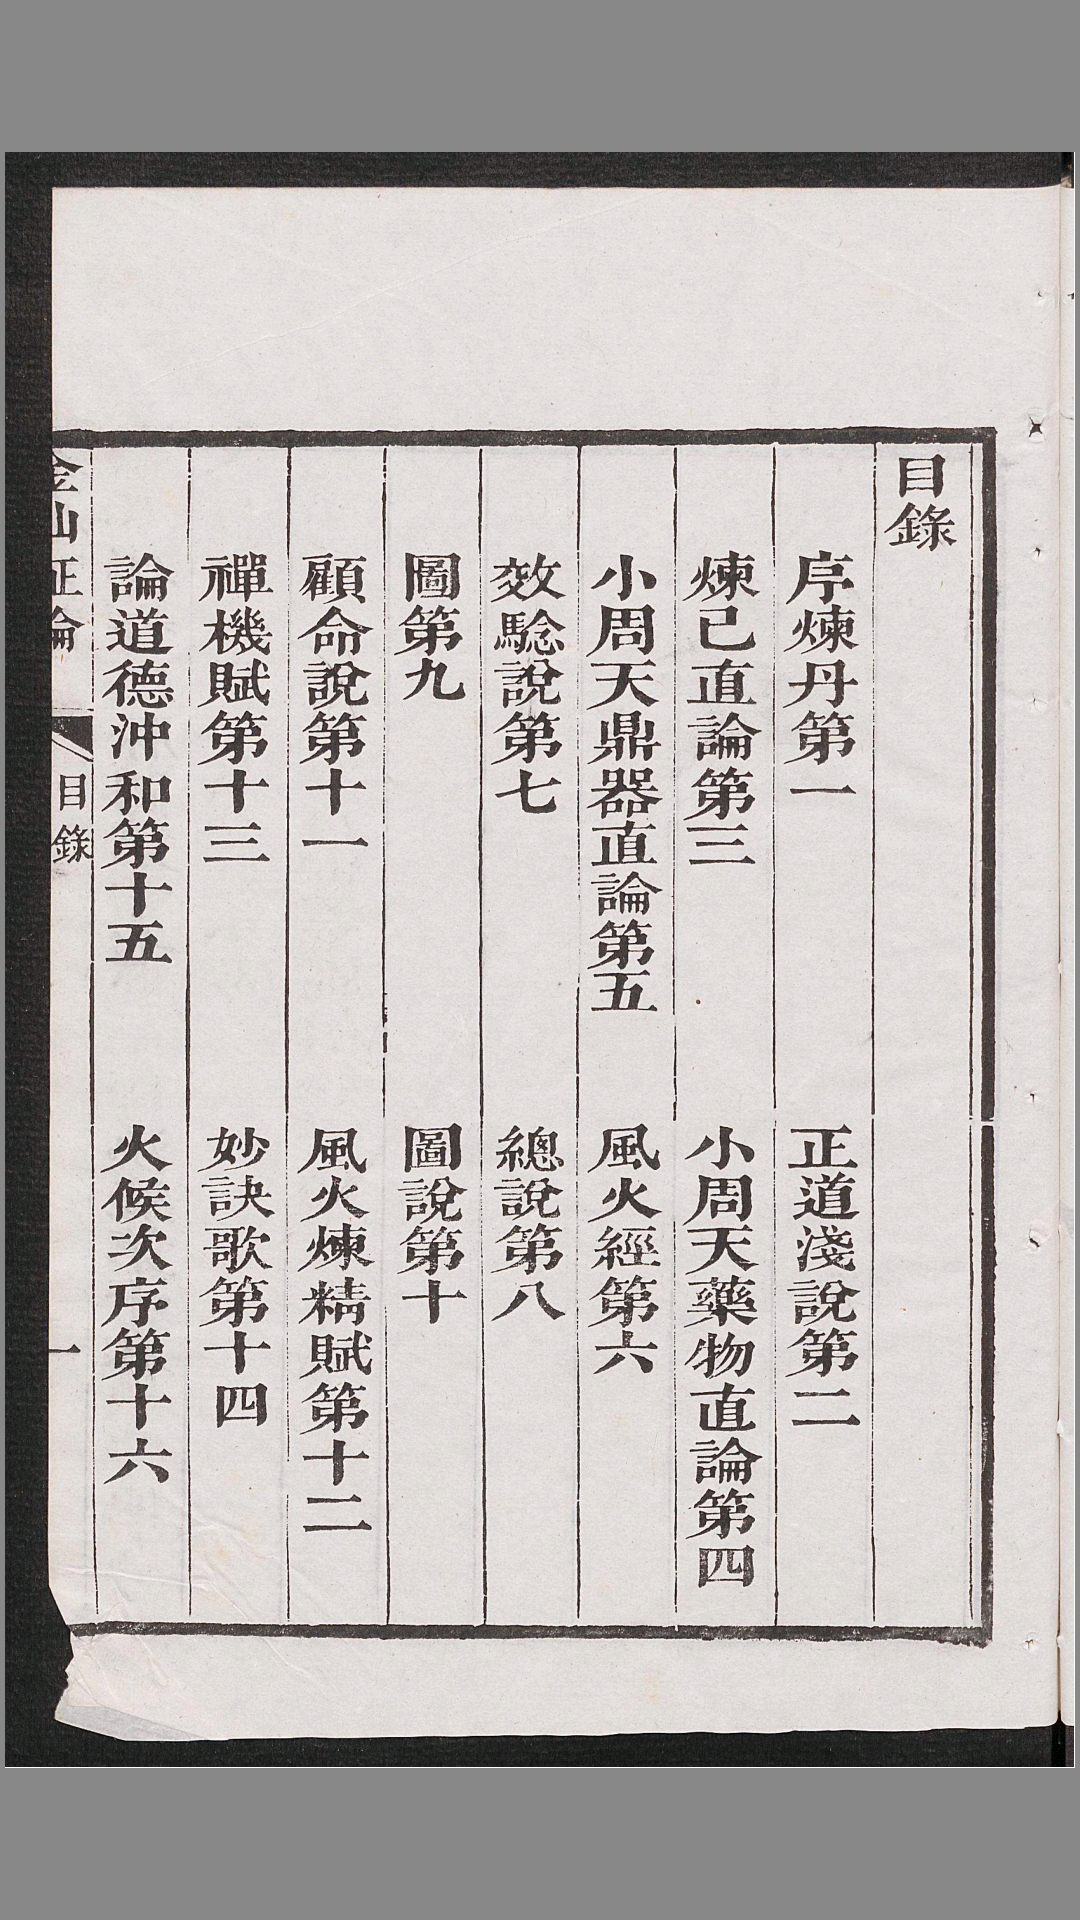 目錄
序煉丹第一
正道淺說第二
煉己直論第三
小周天藥物直論第四
小周天鼎器直論第五
風火經第六
效騐說第七
總說第八
圖第九
圖說第十
顧命說第十一
風火煉精賦第十二
禪機賦第十三
妙訣歌第十四
論道德沖和第十五
火候次序第十六
金仙正論
目錄
一